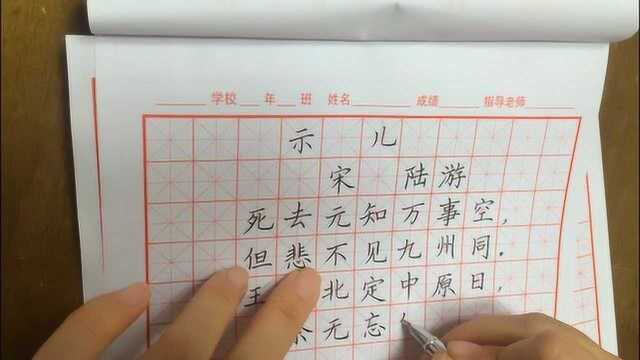 学校 年 班 姓名 成绩 指导老师
示 儿
宋 陆游
死去元知万事空，
但悲不见九州同.
王 北定中原日，
祭无忘